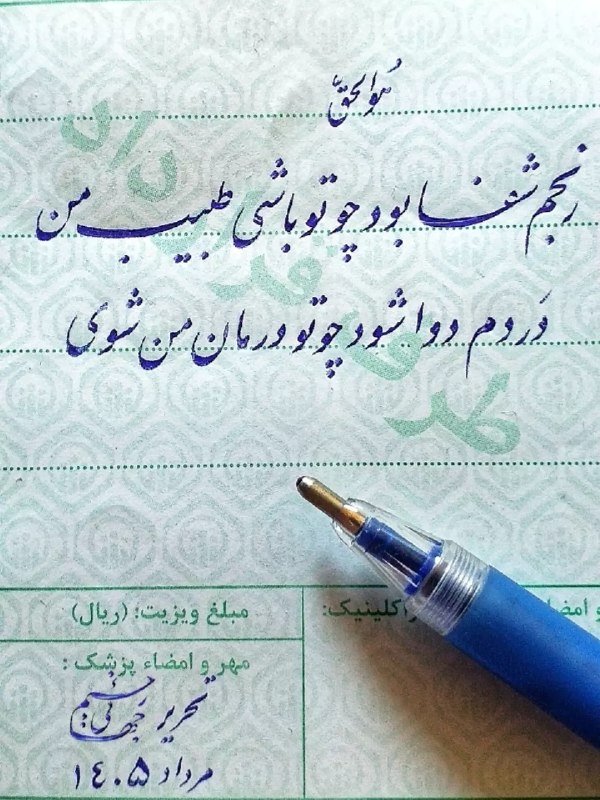 هو الحق
رنجم شفا بود چو تو باشی طبیب من
دَردم دوا شود چو تو درمان من شوی
مبلغ ویزیت: (ریال)
کلینیک:
مهر و امضاء پزشک:
تحریر
مرداد ۱۴۰۵